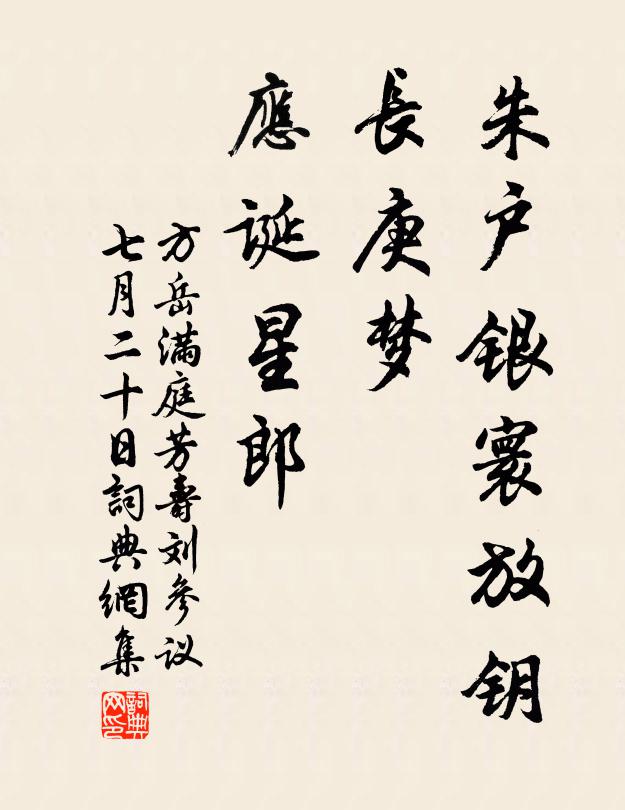 朱户銀寰放钥
長庚梦
應誕星郎
方岳满庭芳壽刘參议
七月二十日詞典網集
詞典网印